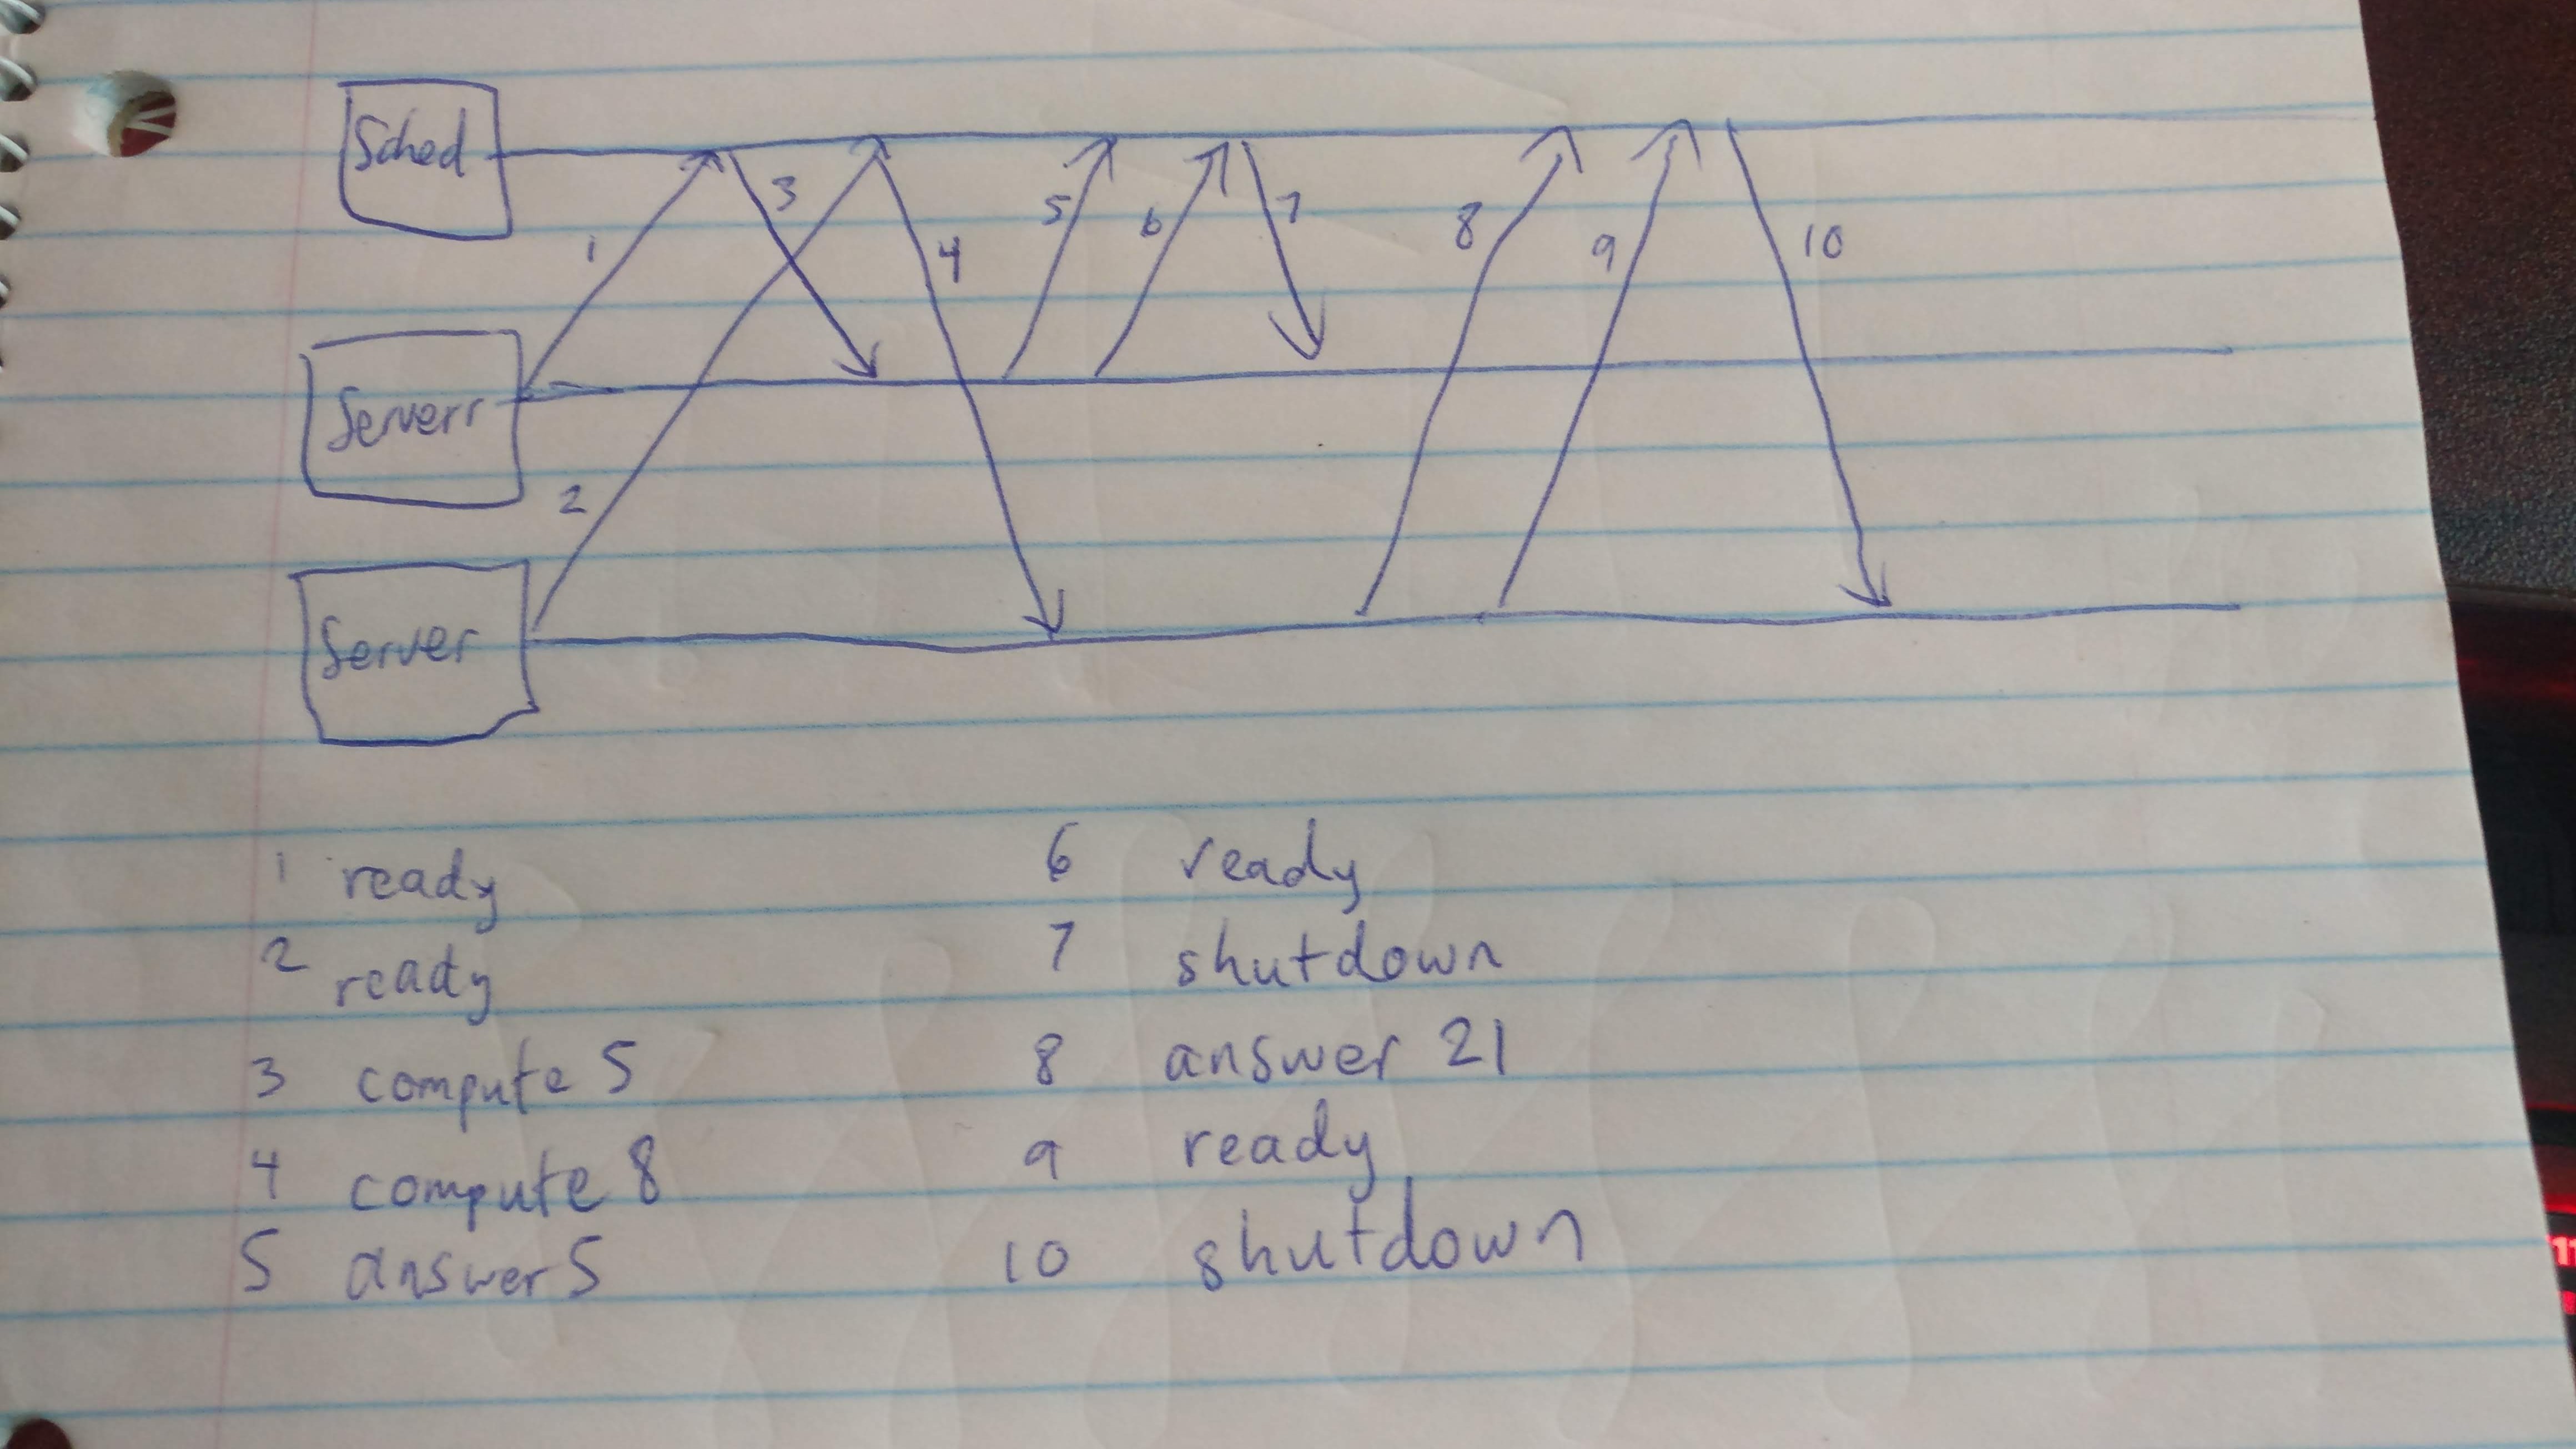 Sched
3
5
6
7
8
9
10
1
4
Serverr
2
Server
1 ready
2 ready
3 compute 5
4 compute 8
5 answer 5
6 ready
7 shutdown
8 answer 21
9 ready
10 shutdown